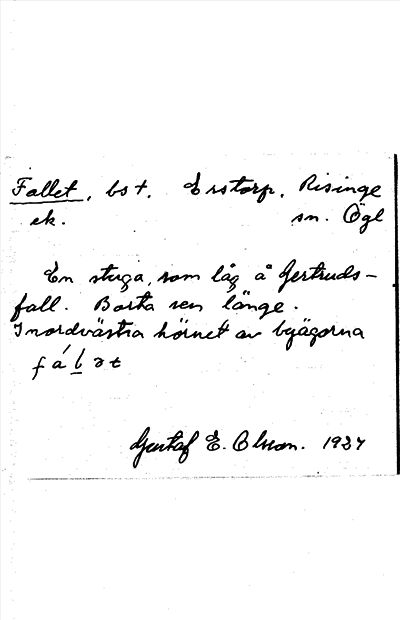 Fallet, bst. Erstorp. Risinge
ek. sn. Ögl
En stuga, som låg å Gertruds-
fall. Borta sen länge.
I nordvästra hörnet av byägorna
fálət
Gustaf E. Olsson. 1937